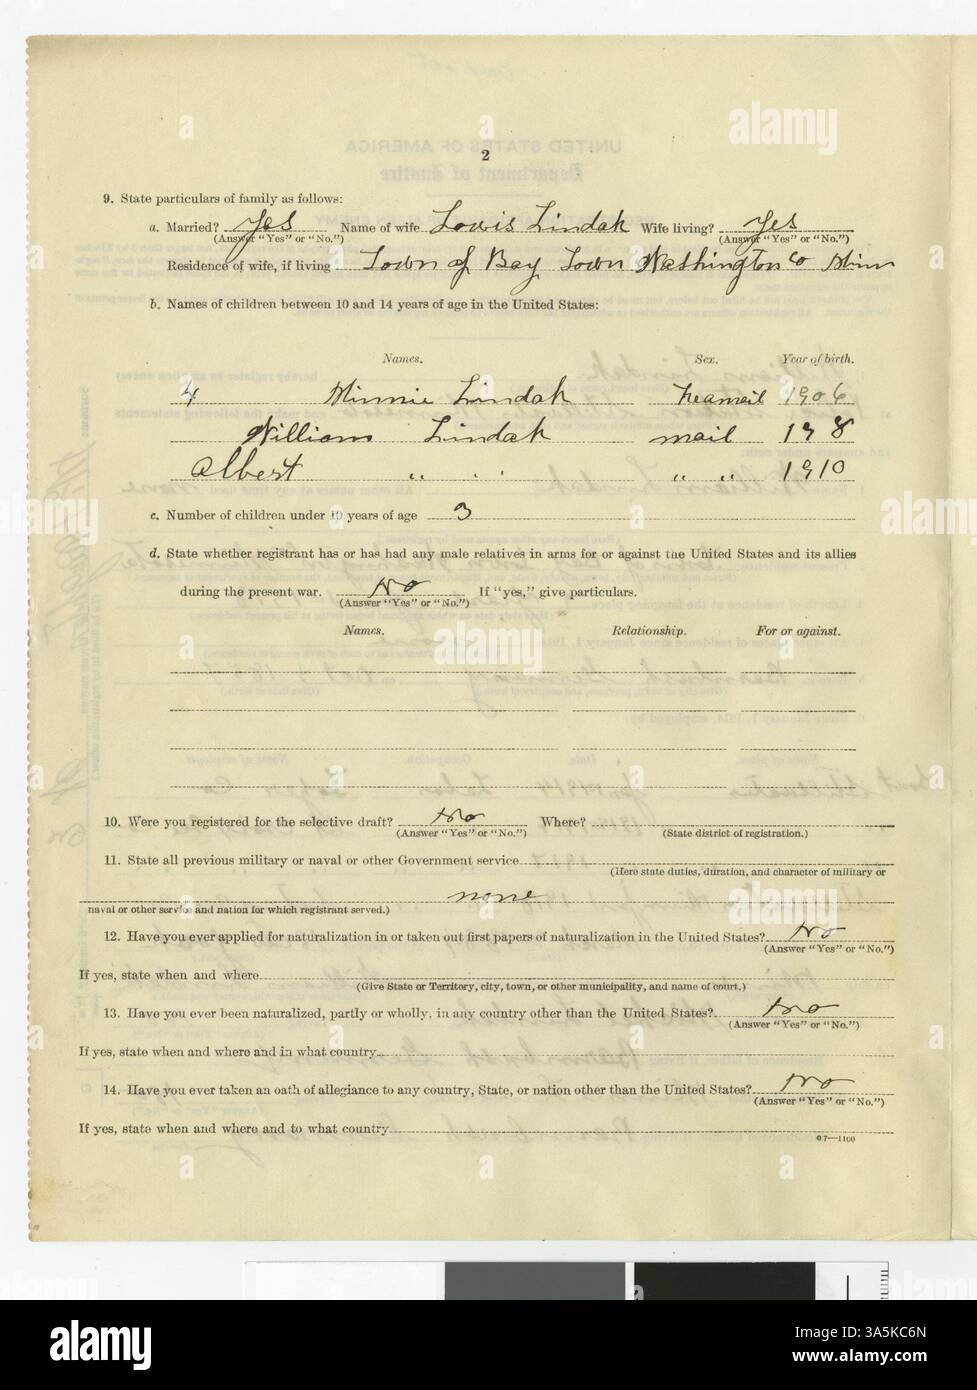 2
9. State particulars of family as follows:
a. Married? Yes Name of wife Lowis Lindak Wife living? Yes
(Answer "Yes" or "No.") (Answer "Yes" or "No.")
Residence of wife, if living Town of Bay Town Washington Co Minn
b. Names of children between 10 and 14 years of age in the United States:
Names. Sex. Year of birth.
4 Minnie Lindak 1906
William Lindak mail 19 8
Albert " " " " 1910
c. Number of children under 10 years of age 3
d. State whether registrant has or has had any male relatives in arms for or against the United States and its allies
during the present war. No If "yes," give particulars.
(Answer "Yes" or "No.")
Names. Relationship. For or against.
10. Were you registered for the selective draft? No Where?
(Answer "Yes" or "No.") (State district of registration.)
11. State all previous military or naval or other Government service
(Here state duties, duration, and character of military or
none
naval or other service and nation for which registrant served.)
12. Have you ever applied for naturalization in or taken out first papers of naturalization in the United States? No
(Answer "Yes" or "No.")
If yes, state when and where
(Give State or Territory, city, town, or other municipality, and name of court.)
13. Have you ever been naturalized, partly or wholly, in any country other than the United States? No
(Answer "Yes" or "No.")
If yes, state when and where and in what country
14. Have you ever taken an oath of allegiance to any country, State, or nation other than the United States? No
(Answer "Yes" or "No.")
If yes, state when and where and to what country
07—1100
alamy
Image ID: 3A5KC6N
www.alamy.com